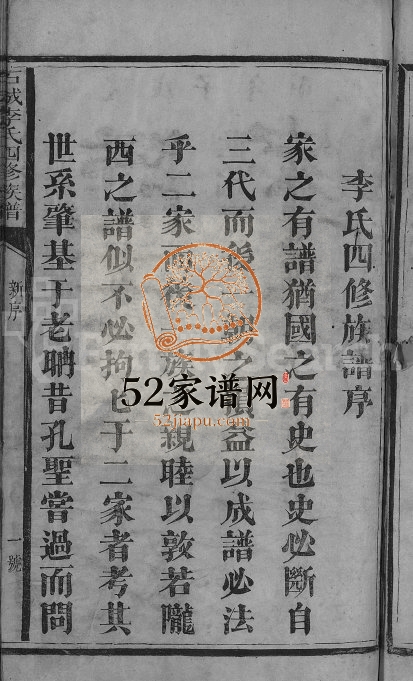 李氏四修族譜序
家之有譜猶國之有史也史必斷自
三代而後之益以成譜必法
乎二家而後族親睦以敦若隴
西之譜似不必拘于二家者考其
世系肇基于老聃昔孔聖嘗過而問
石城李氏四修族譜
新序
一號
52家谱网
52jiapu.com